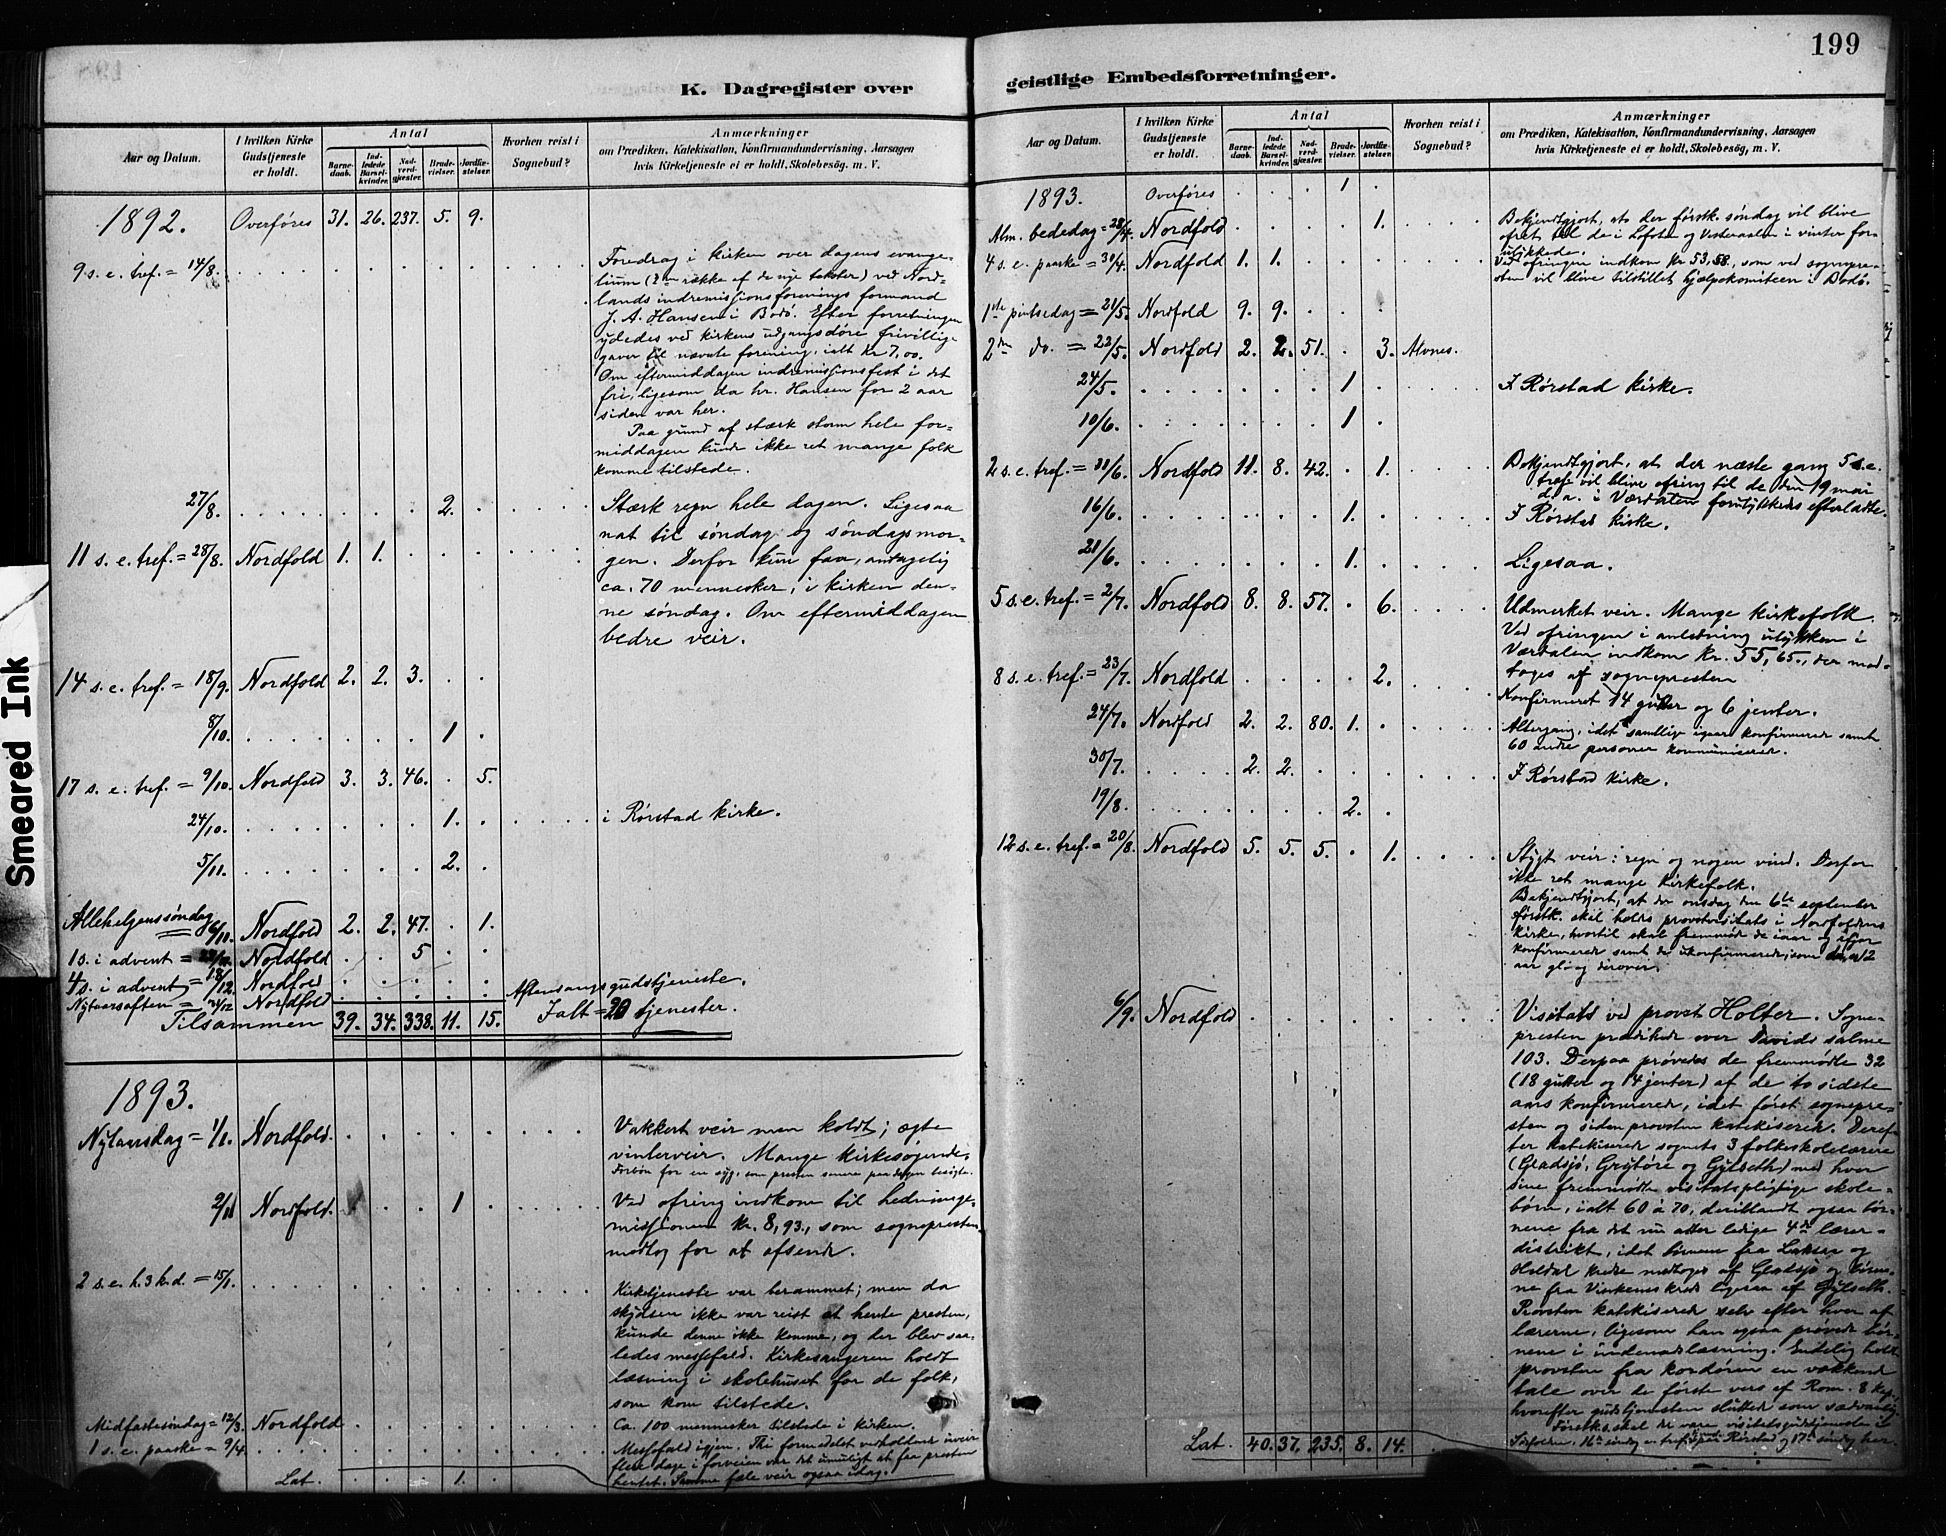 199
K. Dagregister over
geistlige Embedsforretninger.
Smeared Ink
Aar og Datum.
I hvilken Kirke Gudstjeneste er holdt.
Antal
Barnedaab.
Indledede Barselkvinder.
Nadverdgjæster.
Brudevielser.
Jordfæstelser.
Hvorhen reist i Sognebud?
Anmærkninger
om Prædiken, Katekisation, Konfirmandundervisning, Aarsagen
hvis Kirketjeneste ei er holdt, Skolebesøg, m. V.
1892. Overføres 31. 26. 237. 5. 9.
9 s. e. tref. = 14/8.
Foredrag i kirken over dagens evange-
lium (2den række af de nye tekster) ved Nord-
lands indremissjonsforenings formand
J. A. Hansen i Bodø. Efter forretningen
ydedes ved kirkens udgangsdøre frivillige
gaver til nævnte forening, ialt Kr 7,00.
Om eftermiddagen indremissjonsfest i det
fri, ligesom da hr. Hansen for 2 aar
siden var her.
Paa grund af stærk storm hele for-
middagen kunde ikke ret mange folk
komme tilstede.
27/8. 2.
Stærk regn hele dagen. Ligesaa
11 s. e. tref. = 28/8. Nordfold 1. 1.
nat til søndag og søndagsmor-
gen. Derfor kun faa, antagelig
ca. 70 mennesker, i kirken den-
ne søndag. Om eftermiddagen
bedre veir.
14 s. e. tref. = 18/9. Nordfold 2. 2. 3.
8/10. 1
17 s. e. tref. = 9/10. Nordfold 3. 3. 46. 5.
24/10. 1. i Rørstad kirke.
5/11. 2.
Allehelgenssøndag 6/11. Nordfold 2. 2. 47. 1.
1 s. i advent = Nordfold 5
4 s. i advent = 18/12. Nordfold
Nytaarsaften = 31/12 Nordfold Aftensangsgudstjeneste.
Tilsammen 39. 34. 338. 11. 15. Ialt = 20 tjenester.
1893.
Nytaarsdag = 1/1. Nordfold.
Vakkert veir men koldt; ægte
vinterveir. Mange kirkesøgende.
Forbøn for en syg, som presten senere paa dagen besøgte.
2/1 Nordfold. 1
Ved ofring indkom til hedninge-
missjonen kr. 8,93, som sognepresten
modtog for at afsende.
2 s. e. h. 3 k. d. = 15/1.
Kirketjeneste var berammet; men da
skydsen ikke var reist at hente presten,
kunde denne ikke komme, og der blev saa-
ledes messefald. Kirkesangeren holdt
læsning i skolehuset for de folk,
som kom tilstede.
Midfastesøndag = 12/3. Nordfold
Ca. 100 mennesker tilstede i kirken.
1 s. e. paaske = 9/4.
Messefald igjen. Thi formedelst vedholdende uveir
flere dage i forveien var det umuligt at faa presten
hentet. Samme fæle veir ogsaa idag.
Lat. 1.
Aar og Datum.
I hvilken Kirke Gudstjeneste er holdt.
Antal
Barnedaab.
Indledede Barselkvinder.
Nadverdgjæster.
Brudevielser.
Jordfæstelser.
Hvorhen reist i Sognebud?
Anmærkninger
om Prædiken, Katekisation, Konfirmandundervisning, Aarsagen
hvis Kirketjeneste ei er holdt, Skolebesøg, m. V.
1893. Overføres 1
Alm. bededag = 28/4. Nordfold 1.
Bekjendtgjort, at der førstk. søndag vil blive
ofret til de i Lofoten og Vesteraalen i vinter for-
ulykkede.
4 s. e. paaske = 30/4. Nordfold 1. 1.
Ved ofringen indkom Kr 53,58, som ved sognepre-
sten vil blive tilstillet hjælpekomiteen i Bodø.
1ste pintsedag = 21/5. Nordfold 9. 9.
2den do. = 22/5. Nordfold 2. 2. 51. 3. Alvnes.
24/5. 1 I Rørstad kirke.
10/6. 1
2 s. e. tref. = 11/6. Nordfold 11. 8. 42. 1.
Bekjendtgjort, at der næste gang 5 s. e.
tref. vil blive ofring til de den 19 mai
d. a. i Værdalen forulykkedes efterladte.
16/6. 1. I Rørstad kirke.
21/6. 1. Ligesaa.
5 s. e. tref. = 2/7. Nordfold 8. 8. 57. 6.
Udmerket veir. Mange kirkefolk.
Ved ofringen i anledning ulykken i
Værdalen indkom kr. 55,65, der mod-
toges af sognepresten
8 s. e. tref. = 23/7. Nordfold 2.
Konfirmeret 14 gutter og 6 jenter.
24/7. Nordfold 2. 2. 80. 1.
Altergang, idet samtlige igaar konfirmerede samt
60 andre personer kommuniserer.
30/7. 2. 2. I Rørstad kirke.
19/8. 2.
12 s. e. tref. = 20/8. Nordfold 5. 5. 5. 1.
Stygt veir: regn og nogen vind. Derfor
ikke ret mange kirkefolk.
Bekjendtgjort, at der onsdag den 6te september
førstk. skal holdes provstevisitats i Nordfoldens
kirke, hvortil skal fremmøde de iaar og ifjor
konfirmerede samt de ukonfirmerede, som er 12
aar gl. og derover.
6/9. Nordfold
Visitats ved provst Holter. Sogne-
presten prædikede over Davids salme
103. Derpaa prøvedes de fremmødte 32
(18 gutter og 14 jenter) af de to sidste
aars konfirmerede, idet først sognepre-
sten og siden provsten katekiserede. Deref-
ter katekiserede sognets 3 folkeskolelærere
(Gladsjø, Grytøre og Gylseth) med hver
sine fremmødte visitatspligtige skole-
børn, ialt 60 à 70, deriblandt ogsaa bør-
nene fra det nu atter ledige 4de lærer-
distrikt, idet børnene fra Laksaa og
Holdal kreds modtoges af Gladsjø og børne-
ne fra Vinkenes kreds ligesaa af Gylseth.
Provsten katekiserede selv efter hver af
lærerne, ligesom han ogsaa prøvede bør-
nene i indenadlæsning. Endelig holdt
provsten fra kordøren en vækkende
tale over de første vers af Rom. 8 kap.,
hvorefter gudstjenesten sluttede som sædvanlig.
Førstk. skal der være visitatsgudstjeneste i
16de søndag e. tref. Rørstad og 17de søndag her.
Lat. 40. 37. 235. 8. 14.